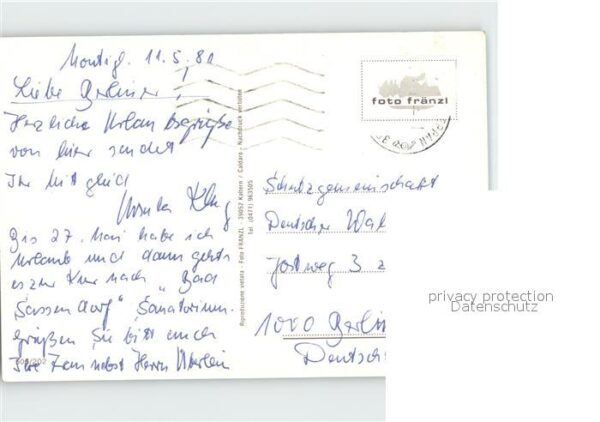 Montigl. 11.5.80
Liebe Berliner,
Herzliche Urlaubsgrüße
von hier sendet
Ihr Mitglied
Ursula
Bis 27. Mai habe ich
Urlaub und dann gehts
es zur Kur nach „Bad
Sassendorf" Sanatorium.
Grüßen Sie bitte auch
Ihre Frau nebst Herrn
609/202
Riproduzione vietata - Foto FRÄNZL - 39052 Kaltern / Caldaro - Nachdruck verboten
Tel. (0471) 963505
foto fränzl
Schutzgemeinschaft
Deutscher Wal
3
1000 Berlin
Deutsch
privacy protection
Datenschutz